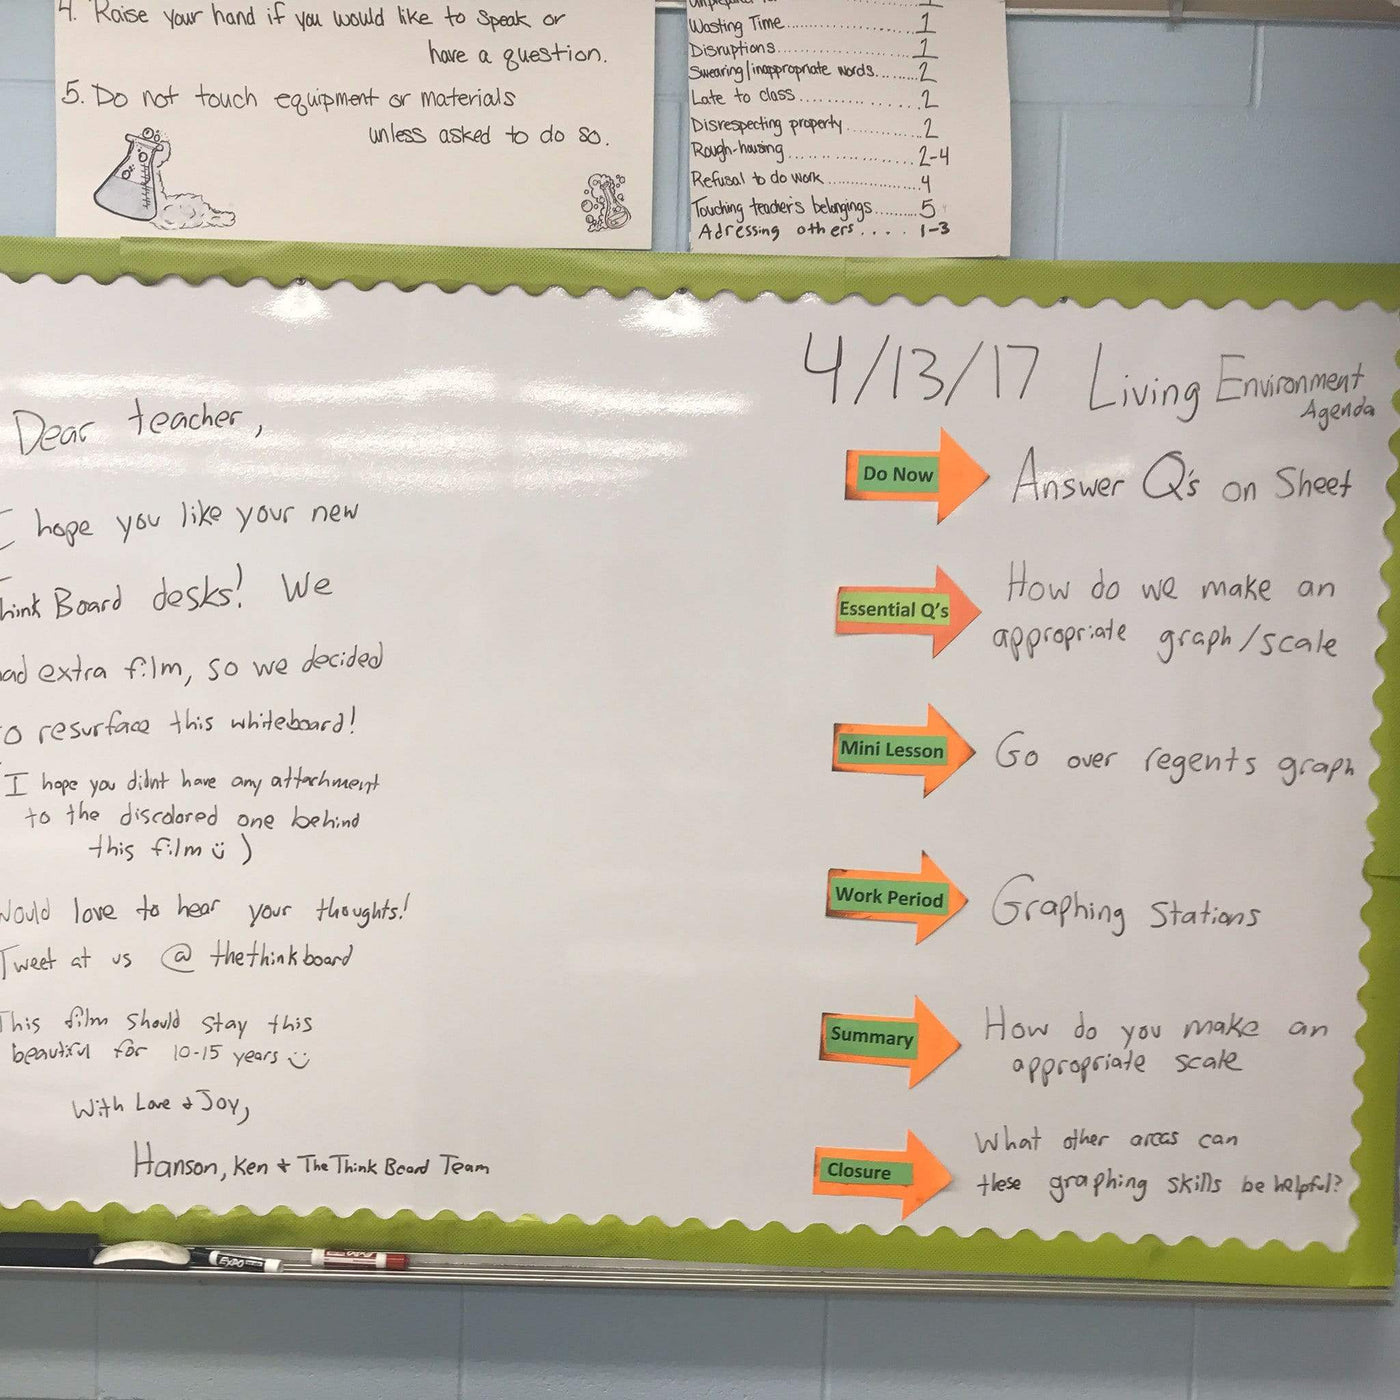 4. Raise your hand if you would like to speak or
have a question.
5. Do not touch equipment or materials
unless asked to do so.
Wasting Time............1
Disruptions..............1
Swearing/inappropriate words........2
Late to class..............2
Disrespecting property...........2
Rough-housing................2-4
Refusal to do work...............4
Touching teacher's belongings.........5
Adressing others.... 1-3
Dear teacher,
I hope you like your new
Think Board desks! We
had extra film, so we decided
to resurface this whiteboard!
I hope you didnt have any attachment
to the discolored one behind
this film ü )
Would love to hear your thoughts!
Tweet at us @thethinkboard
This film should stay this
beautiful for 10-15 years ü
With Love & Joy,
Hanson, Ken + The Think Board Team
4/13/17 Living Environment
Agenda
Do Now Answer Q's on Sheet
Essential Q's How do we make an
appropriate graph/scale
Mini Lesson Go over regents graph
Work Period Graphing Stations
Summary How do you make an
appropriate scale
Closure What other areas can
these graphing skills be helpful?
EXPO